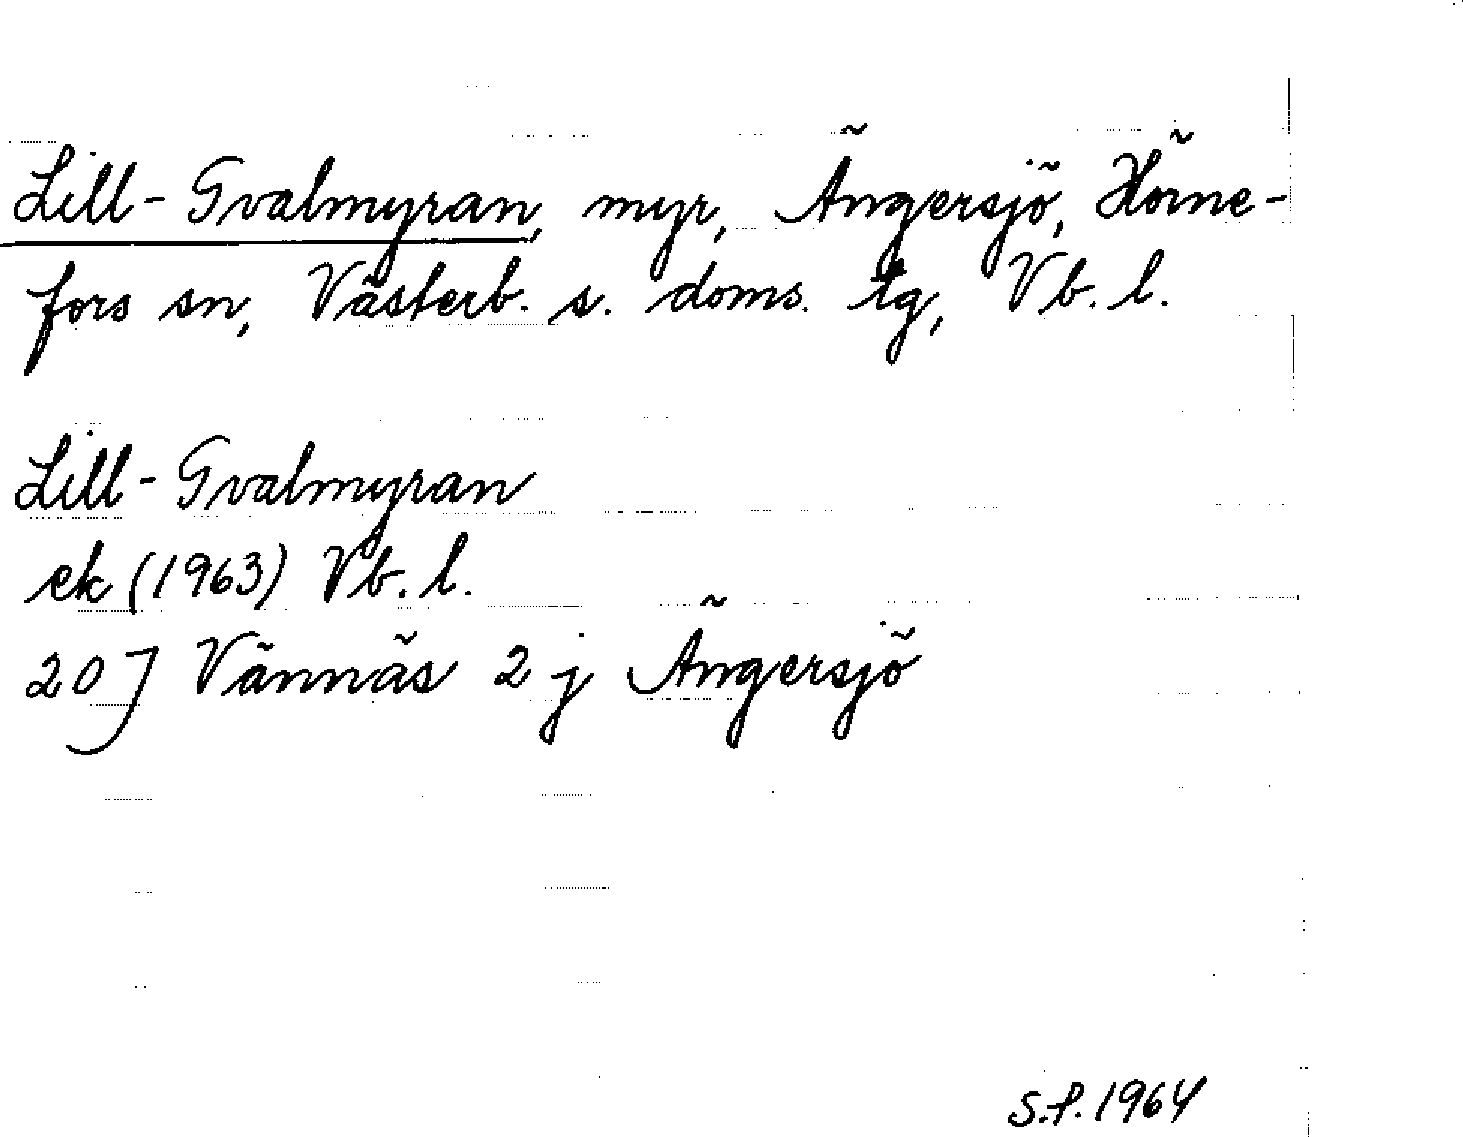 Lill-Gvalmyran, myr, Ängersjö, Hörne-
fors sn, Västerb. s. doms. tg, Vb. l.
Lill-Gvalmyran
ek (1963) Vb. l.
20J Vännäs 2 j Ängersjö
S.P. 1964